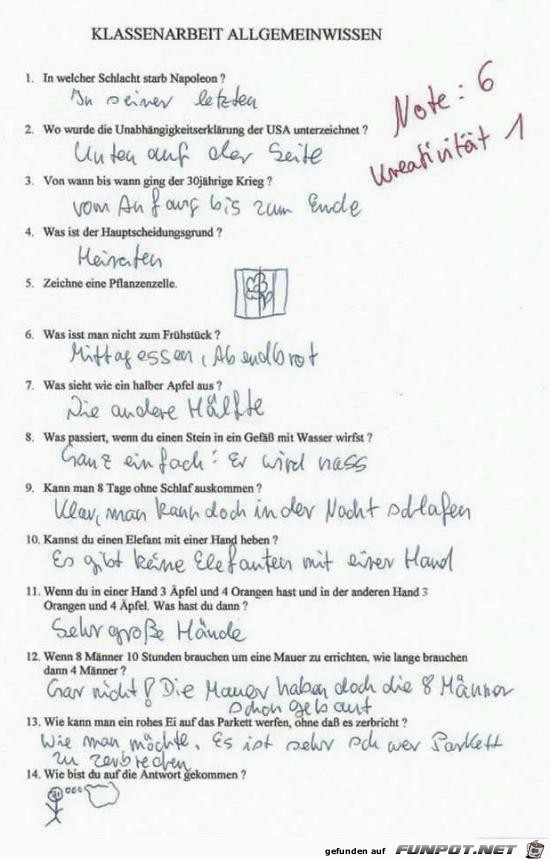 KLASSENARBEIT ALLGEMEINWISSEN
1. In welcher Schlacht starb Napoleon ?
In seiner letzten
Note: 6
Kreativität 1
2. Wo wurde die Unabhängigkeitserklärung der USA unterzeichnet ?
Unten auf der Seite
3. Von wann bis wann ging der 30jährige Krieg ?
vom Anfang bis zum Ende
4. Was ist der Hauptscheidungsgrund ?
Heiraten
5. Zeichne eine Pflanzenzelle.
6. Was isst man nicht zum Frühstück ?
Mittagessen, Abendbrot
7. Was sieht wie ein halber Apfel aus ?
Die andere Hälfte
8. Was passiert, wenn du einen Stein in ein Gefäß mit Wasser wirfst ?
Ganz einfach: Er wird nass
9. Kann man 8 Tage ohne Schlaf auskommen ?
Klar, man kann doch in der Nacht schlafen
10. Kannst du einen Elefant mit einer Hand heben ?
Es gibt keine Elefanten mit einer Hand
11. Wenn du in einer Hand 3 Äpfel und 4 Orangen hast und in der anderen Hand 3
Orangen und 4 Äpfel. Was hast du dann ?
Sehr große Hände
12. Wenn 8 Männer 10 Stunden brauchen um eine Mauer zu errichten, wie lange brauchen
dann 4 Männer ?
Gar nicht! Die Mauer haben doch die 8 Männer
schon gebaut
13. Wie kann man ein rohes Ei auf das Parkett werfen, ohne daß es zerbricht ?
Wie man möchte. Es ist sehr schwer Parkett
zu zerbrechen
14. Wie bist du auf die Antwort gekommen ?
gefunden auf FUNPOT.NET